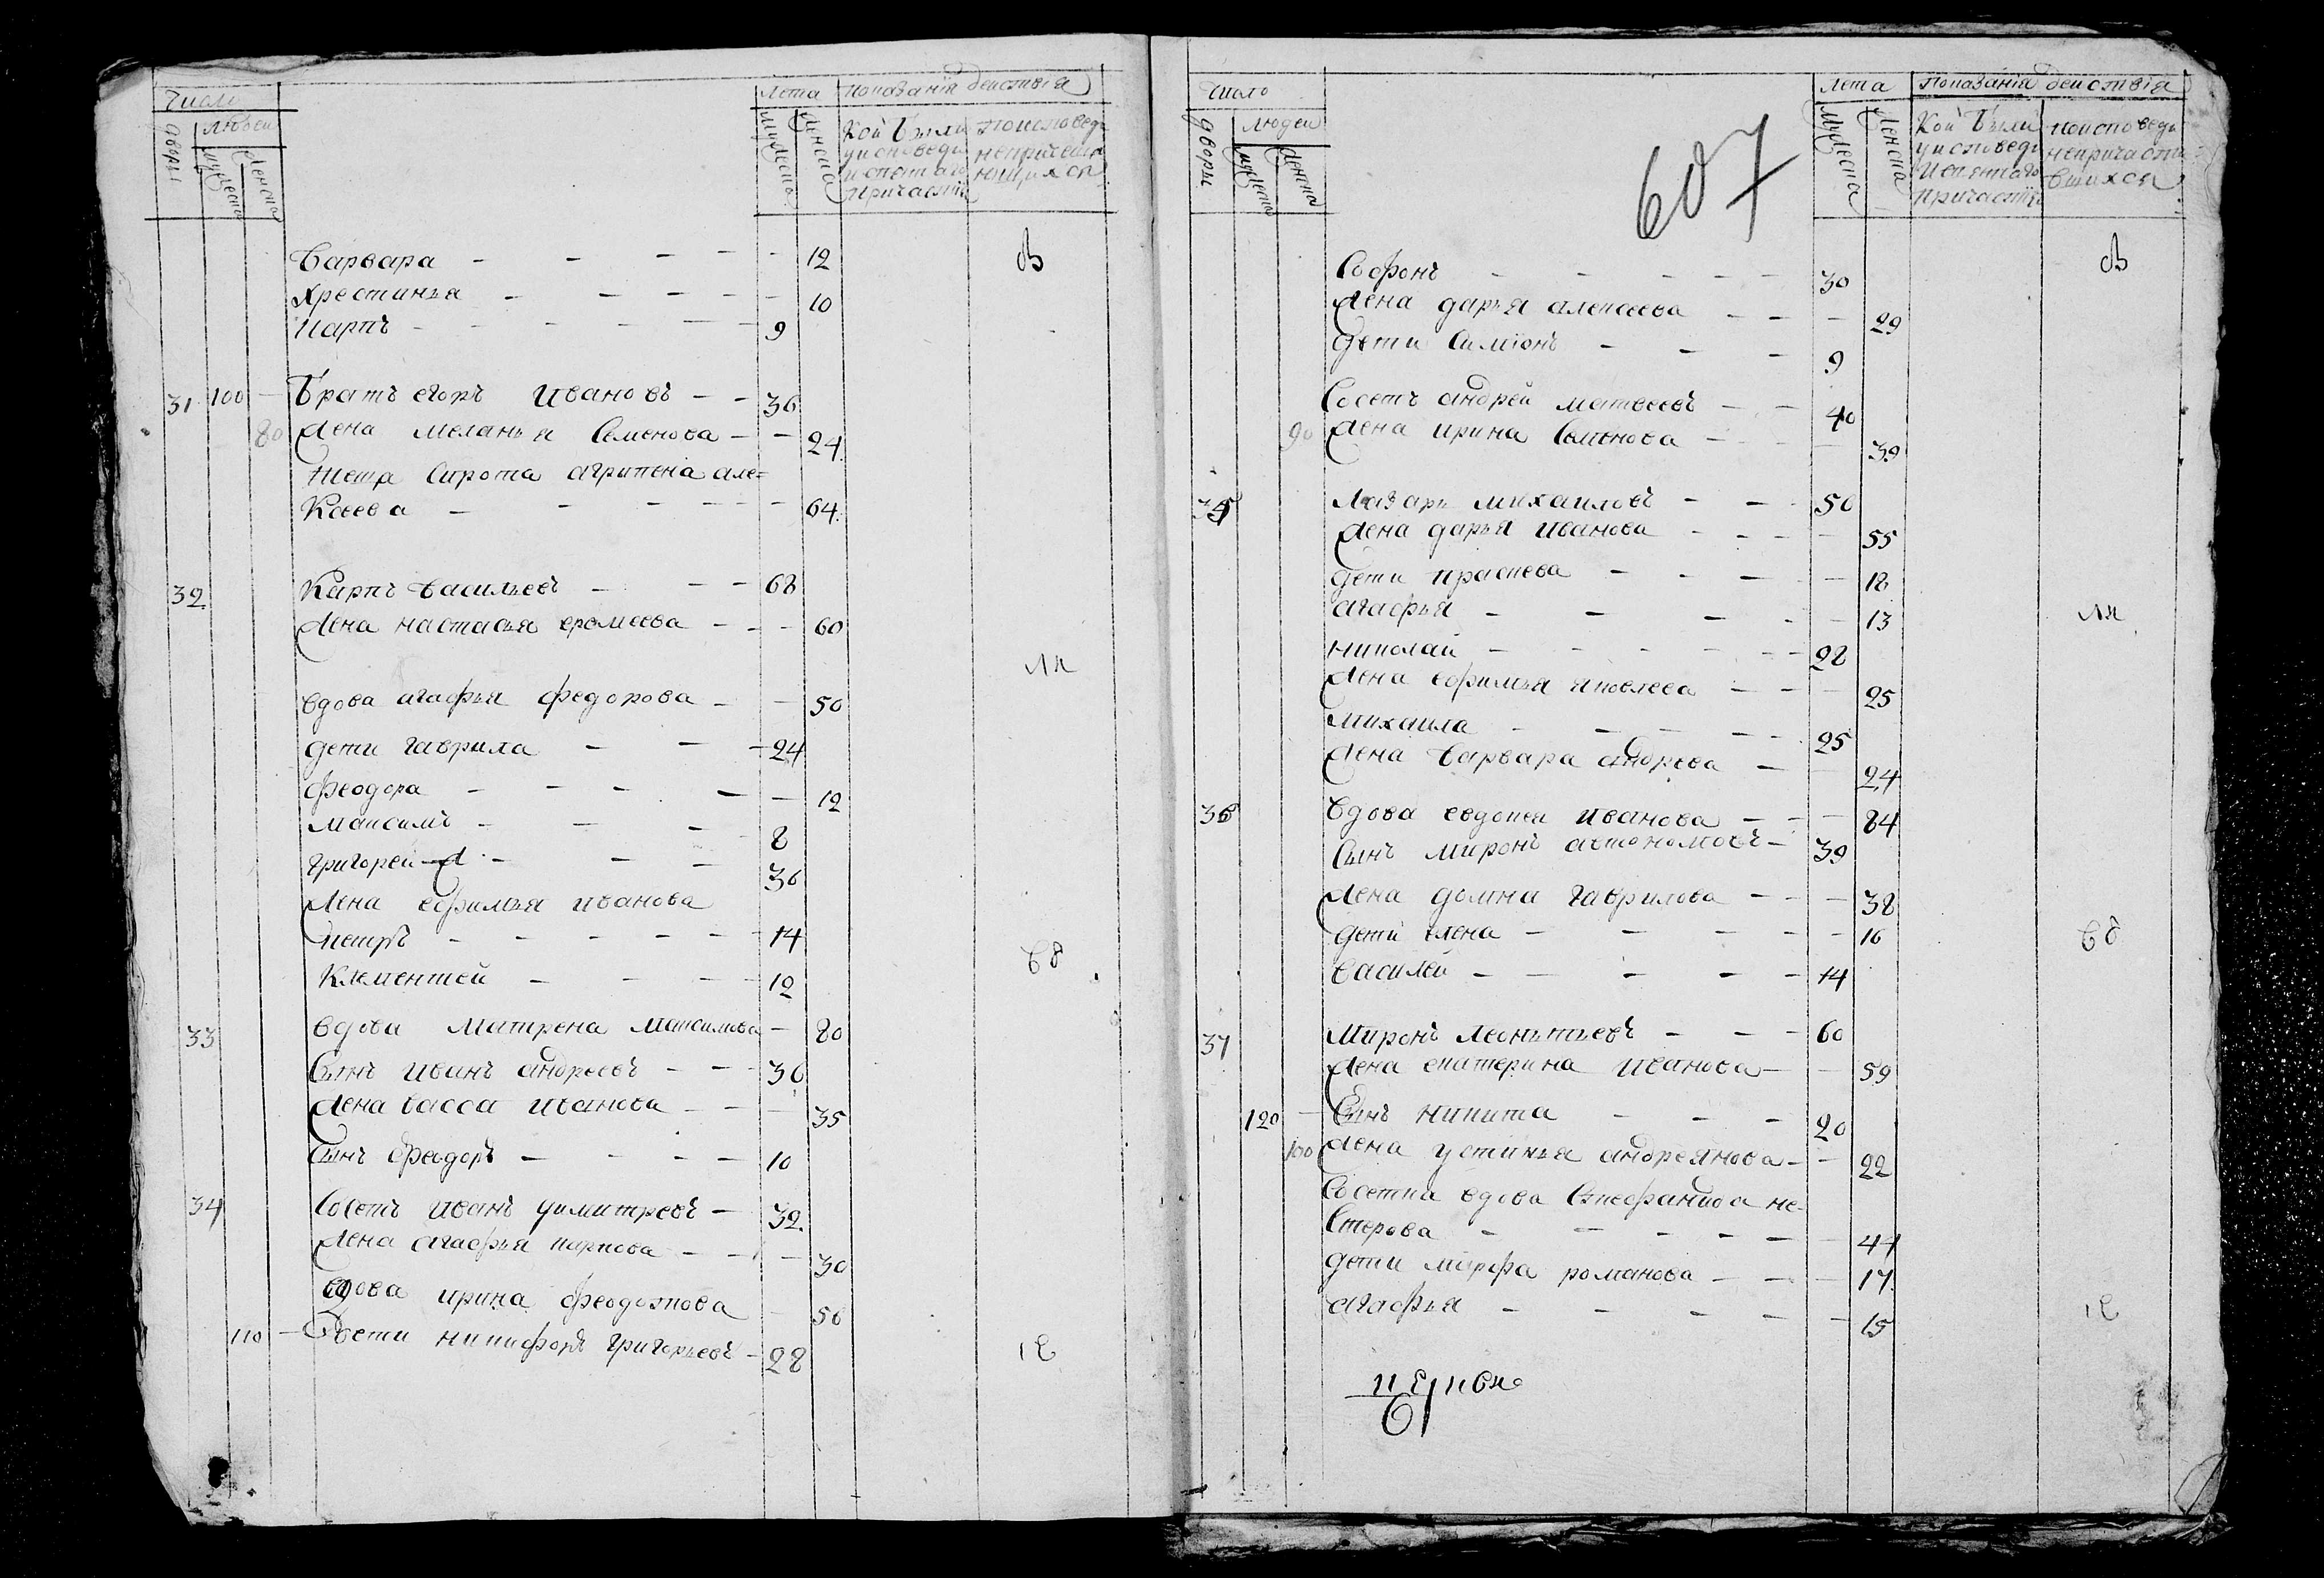 Число
Лета показанія действія
дворы
людей
мужеска
женска
мужеска
женска
Кой были
у исповеди
и святаго
причастія
по исповеди
Варвара — — — — — 12
Хрестинья — — — — — 10
Карпъ — — — — — 9
31 100 — Братъ егоръ Ивановъ — — 36
80 Жена меланья Семенова — — 24
теща Сирота агрипена але=
Ксеева — — — — — 64
32 Карпъ Васильевъ — — — 68
Жена настасья еремеева — — — 60
вдова агафья федорова — — 50
дети гаврила — — — 24
феодора — — — — — 12
максимъ — — — 8
григорей — — — 36
Жена ефимья иванова
петръ — — — — — — 14
Клементей — — — — 12
33 вдова Матрена Максимова — 80
Сынъ Иванъ андреевъ — — — 36
Жена васса Иванова — — — 35
Сынъ феодоръ — — — — 10
34 Сосетъ Иванъ димитревъ — 32
Жена агафья карпова — — — 30
вдова ирина феодотова — 56
110 — дѣти никифоръ григорьевъ — 28
Число
607
Лета Показанія действія
дворы
людей
мужеска
женска
мужеска
женска
Кой были
у исповеди
и святаго
причастія
по исповеди
непричасти
вшихся
Софонъ — — — — — 30
Жена дарья алексеева — — — 29
дети Симіонъ — — — 9
Сосетъ андрей матвеевъ — — 40
90 Жена ирина Семенова — — 39
35 Лазарь михаиловъ — — 56
Жена дарья иванова — — — — 55
дети праскева — — — — 18
агафья — — — — — 13
николай — — — — — — 28
Жена ефимья яковлева — — — 25
михаила — — — — — 25
Жена варвара андрева — — 24
36 Вдова евдокея иванова — — — 84
Сынъ миронъ автономовъ — 39
Жена домна гаврилова — — — 38
дети елена — — — — — 16
василей — — — — — 14
37 Миронъ леонтьевъ — — — 60
Жена екатерина иванова — — 59
120 — Сынъ никита — — — 20
100 Жена устинья андреянова — — 22
Сосетка вдова Стефанида не-
Стерова — — — — — — 44
дети марфа романова — — — 17
агафья — — — — — 15